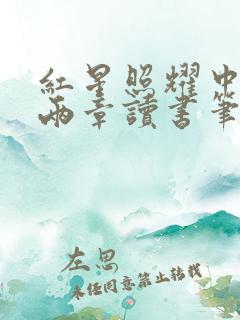 紅星照耀中
兩章讀書筆
左思
未经同意禁止转载